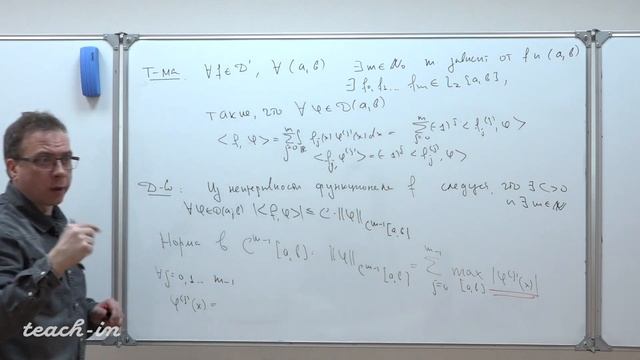 Т-ма. ∀ f ∈ D', ∀ (a, b) ∃ m ∈ N₀ m зависит от f и (a, b)
∃ f₀, f₁ ... fₘ ∈ L₂[a, b],
такие, что ∀ φ ∈ D(a, b)
<f, φ> = Σ_{j=0}^{m} ∫_R f_j(x) φ^{(j)}(x) dx = Σ_{j=0}^{m} (-1)^j <f_j^{(j)}, φ>
<f_j, φ^{(j)}> = (-1)^j <f_j^{(j)}, φ>
Д-во: Из непрерывности функционала f следует, что ∃ C > 0
∀ φ ∈ D(a, b) |<f, φ>| ≤ C · ||φ||_{C^{m-1}[a, b]} и ∃ m ∈ N
Норма в C^{m-1}[a, b]: ||φ||_{C^{m-1}[a, b]} = Σ_{j=0}^{m-1} max_{[a, b]} |φ^{(j)}(x)|
∀ j = 0, 1 ... m-1
φ^{(j)}(x) =
teach-in